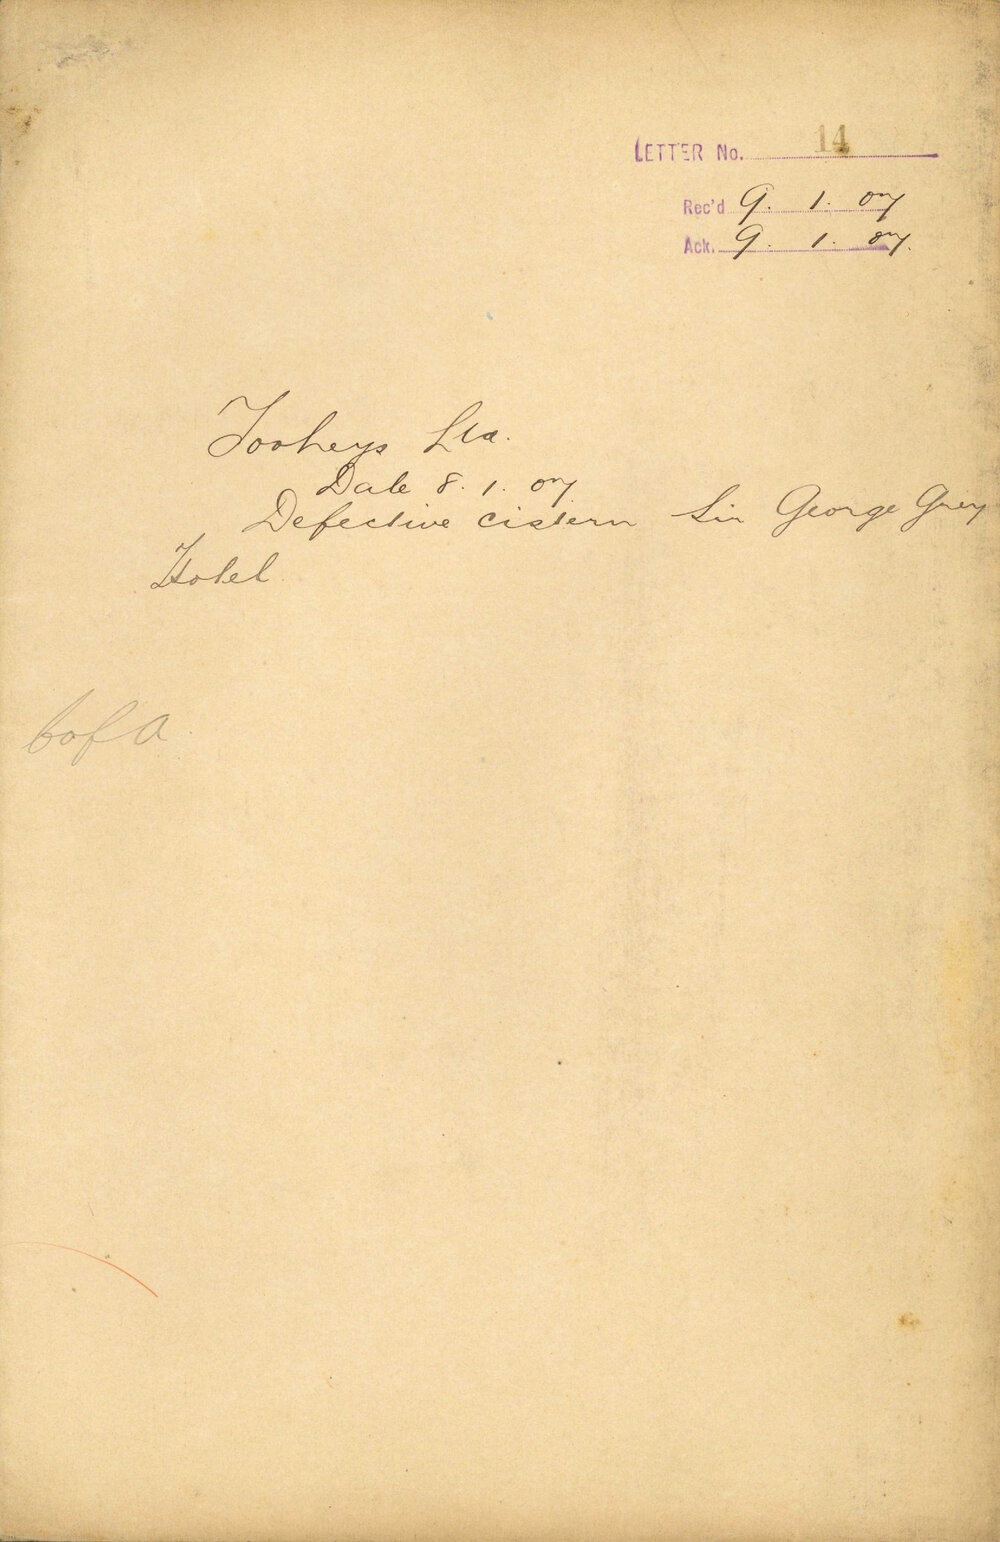 LETTER No. 14
Rec'd 9. 1. 07
Ack. 9. 1. 07.
Tooheys Ltd.
Date 8. 1. 07
Defective cistern Sir George Grey
Hotel
C of A